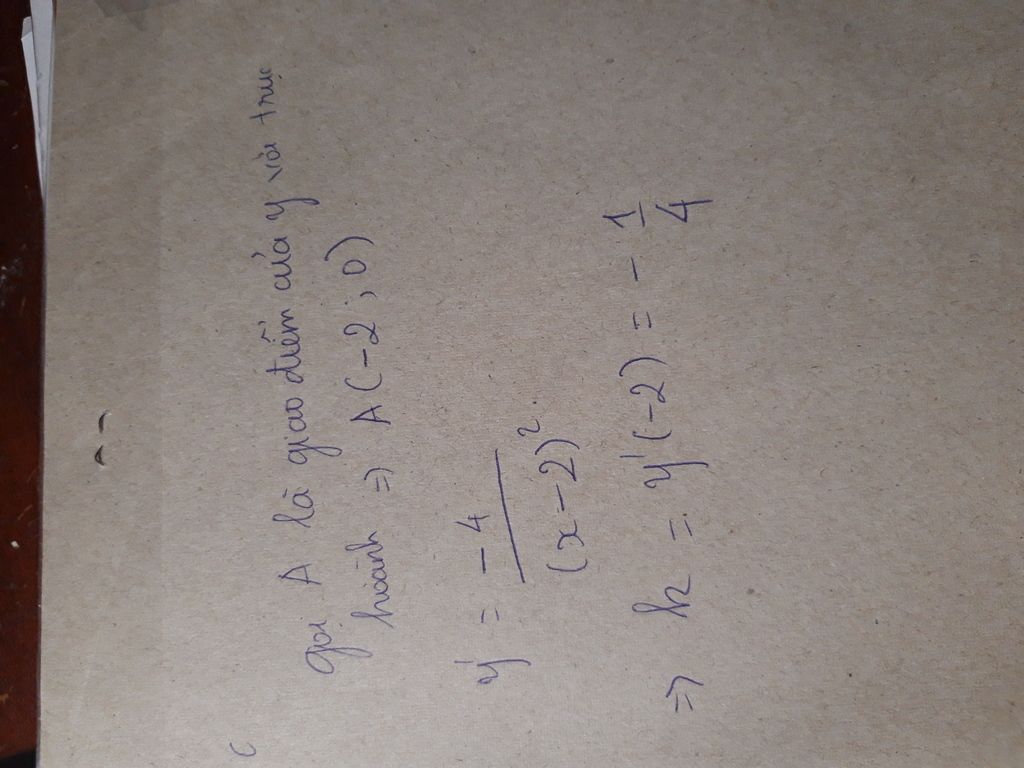 gọi A là giao điểm của y với trục
hoành => A(-2; 0)
y' = -4/(x-2)².
=> k = y'(-2) = -1/4